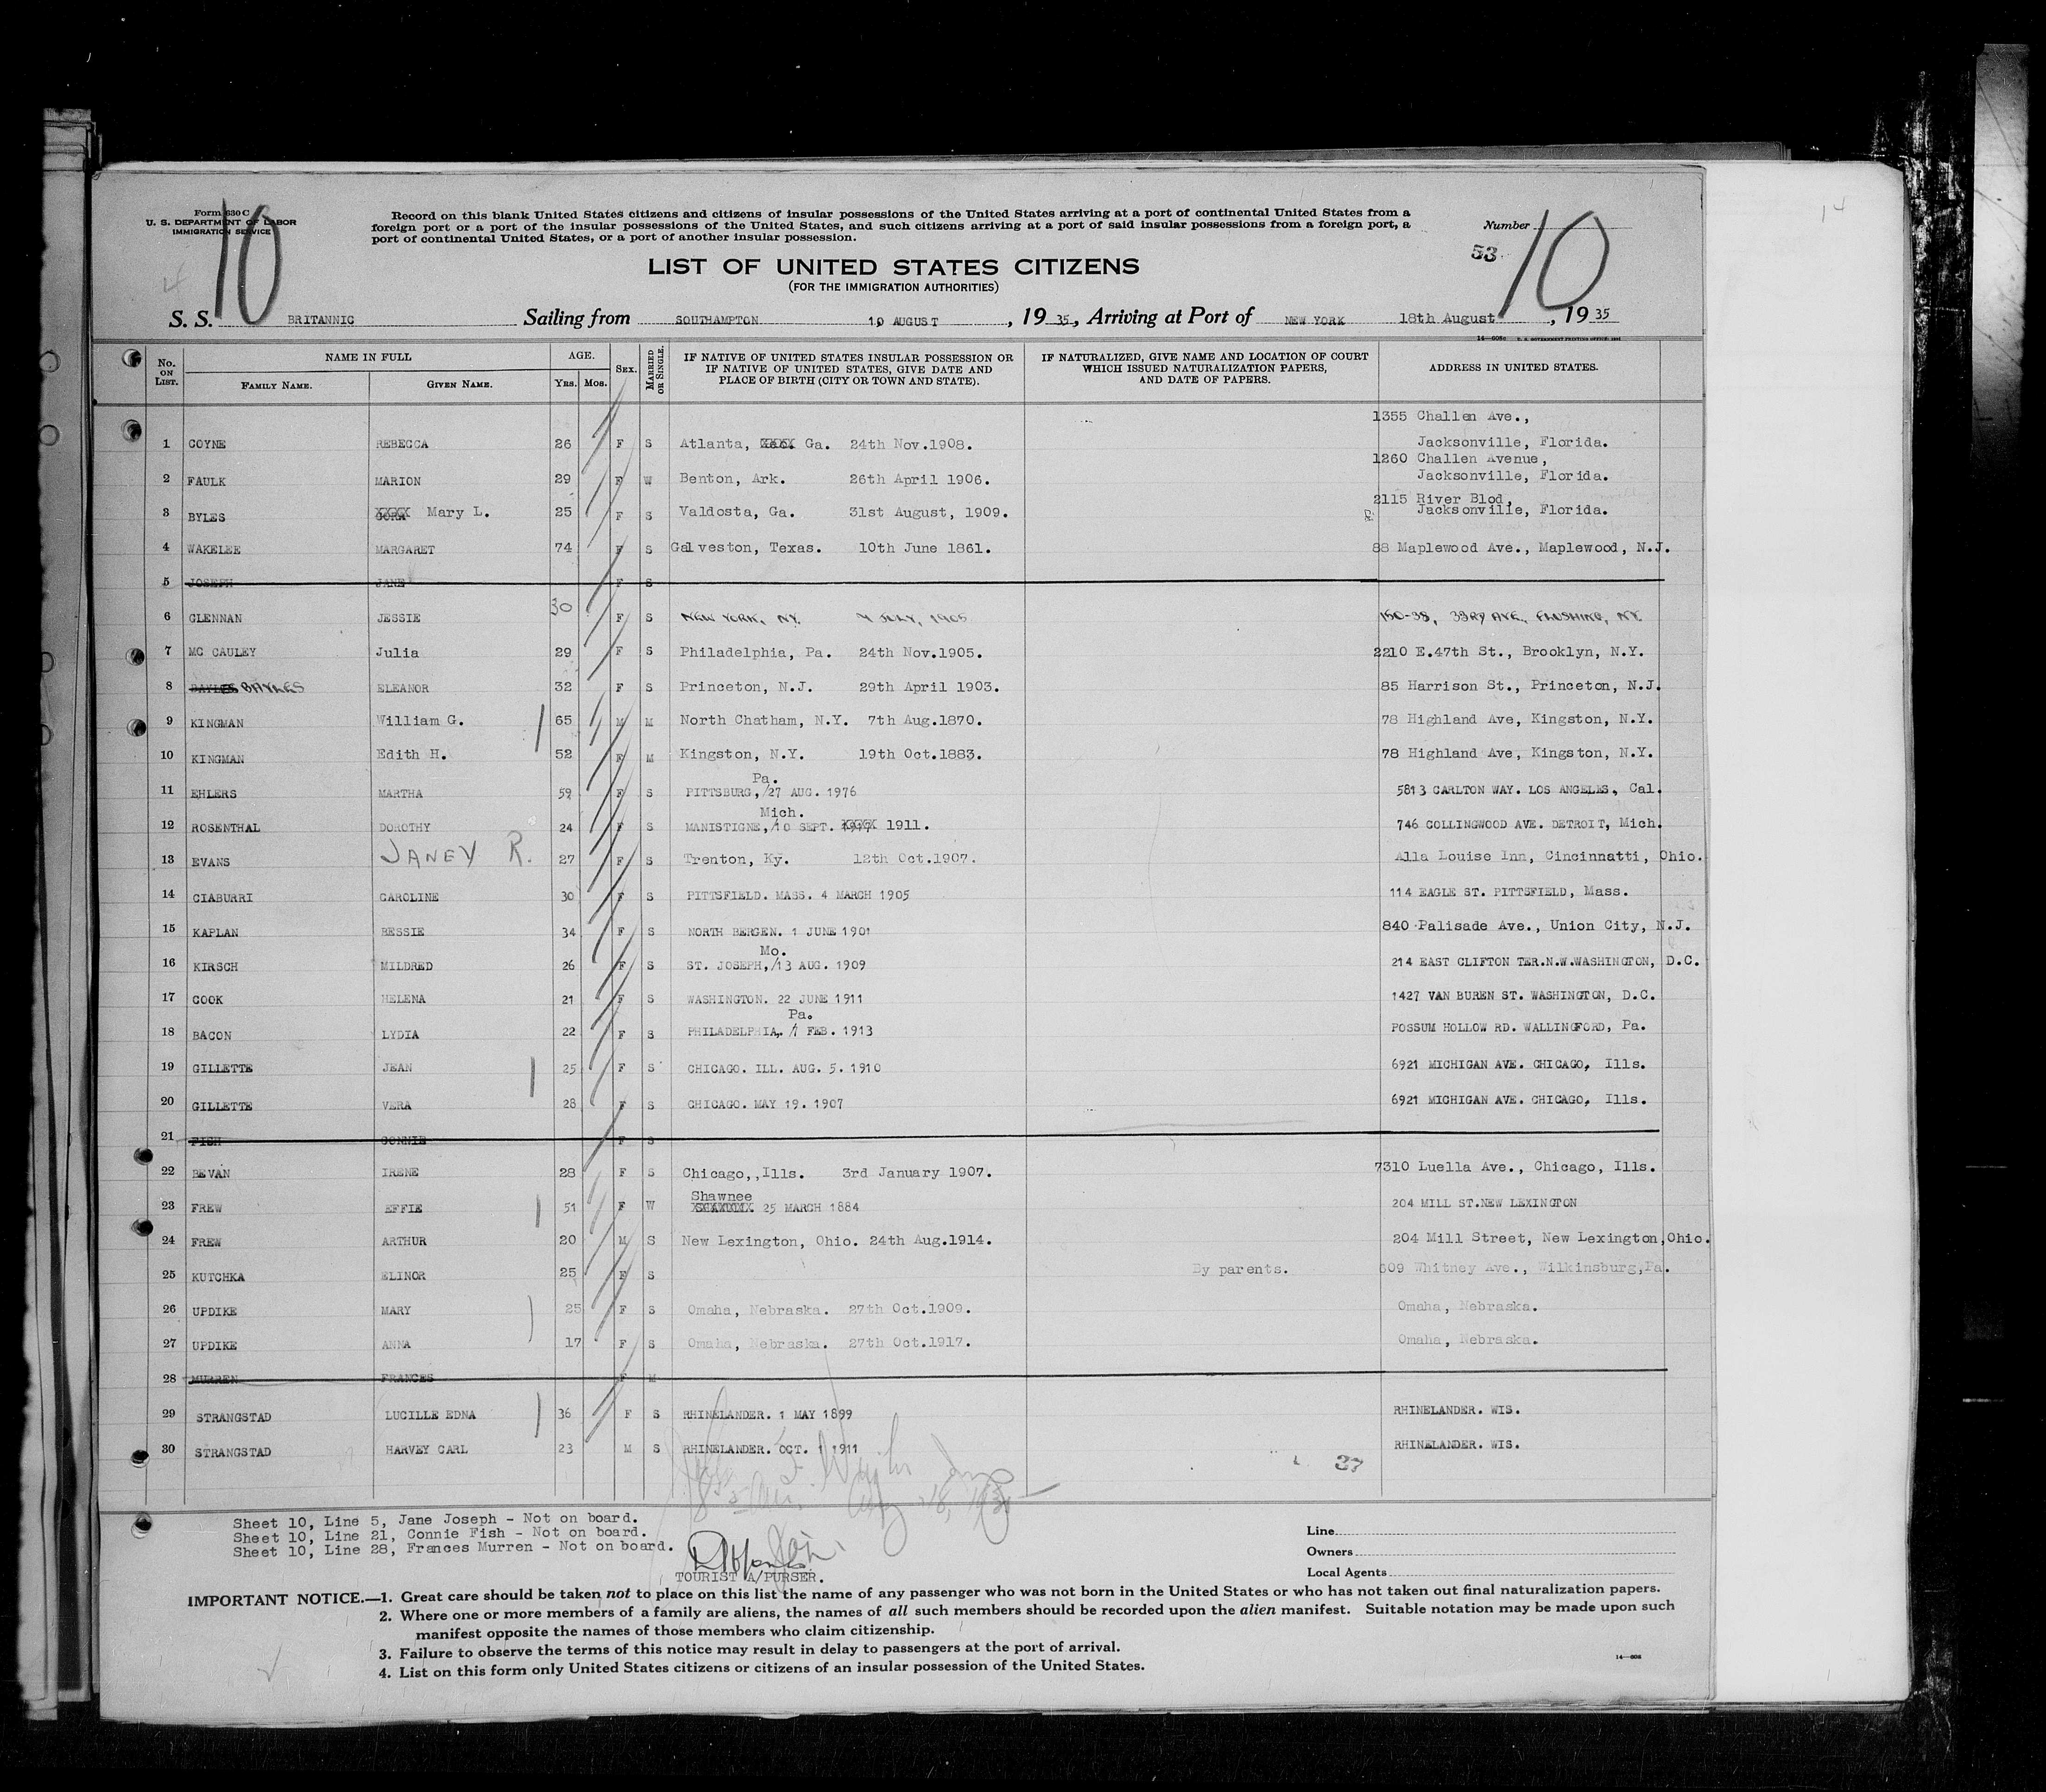 14
Form 630 C
U. S. DEPARTMENT OF LABOR
IMMIGRATION SERVICE
10
4
Record on this blank United States citizens and citizens of insular possessions of the United States arriving at a port of continental United States from a
foreign port or a port of the insular possessions of the United States, and such citizens arriving at a port of said insular possessions from a foreign port, a
port of continental United States, or a port of another insular possession.
Number
53
10
LIST OF UNITED STATES CITIZENS
(FOR THE IMMIGRATION AUTHORITIES)
S. S. BRITANNIC Sailing from SOUTHAMPTON 10 AUGUST, 19 35, Arriving at Port of NEW YORK 18th August, 19 35
No. ON LIST.
NAME IN FULL
FAMILY NAME. GIVEN NAME.
AGE.
YRS. MOS.
SEX.
MARRIED OR SINGLE.
IF NATIVE OF UNITED STATES INSULAR POSSESSION OR
IF NATIVE OF UNITED STATES, GIVE DATE AND
PLACE OF BIRTH (CITY OR TOWN AND STATE).
IF NATURALIZED, GIVE NAME AND LOCATION OF COURT
WHICH ISSUED NATURALIZATION PAPERS,
AND DATE OF PAPERS.
ADDRESS IN UNITED STATES.
1355 Challen Ave.,
1 COYNE REBECCA 26 F S Atlanta, Ga. 24th Nov.1908. Jacksonville, Florida.
1260 Challen Avenue,
2 FAULK MARION 29 F W Benton, Ark. 26th April 1906. Jacksonville, Florida.
2115 River Blod,
3 BYLES Mary L. 25 F S Valdosta, Ga. 31st August, 1909. Jacksonville, Florida.
4 WAKELEE MARGARET 74 F S Galveston, Texas. 10th June 1861. 88 Maplewood Ave., Maplewood, N.J.
5 JOSEPH JANE F S
6 GLENNAN JESSIE 30 F S NEW YORK, NY. JULY, 1905 150-38, 33RD AVE., FLUSHING, NY.
7 MC CAULEY Julia 29 F S Philadelphia, Pa. 24th Nov.1905. 2210 E.47th St., Brooklyn, N.Y.
8 BAYLES ELEANOR 32 F S Princeton, N.J. 29th April 1903. 85 Harrison St., Princeton, N.J.
9 KINGMAN William G. 65 M M North Chatham, N.Y. 7th Aug.1870. 78 Highland Ave, Kingston, N.Y.
10 KINGMAN Edith H. 52 F M Kingston, N.Y. 19th Oct.1883. 78 Highland Ave, Kingston, N.Y.
Pa.
11 EHLERS MARTHA 59 F S PITTSBURG,/27 AUG. 1976 5813 CARLTON WAY. LOS ANGELES, Cal.
Mich.
12 ROSENTHAL DOROTHY 24 F S MANISTIGNE,/10 SEPT. 1911. 746 COLLINGWOOD AVE. DETROIT, Mich.
13 EVANS JANEY R. 27 F S Trenton, Ky. 12th Oct.1907. Alla Louise Inn, Cincinnatti, Ohio.
14 CIABURRI CAROLINE 30 F S PITTSFIELD. MASS. 4 MARCH 1905 114 EAGLE ST. PITTSFIELD, Mass.
15 KAPLAN BESSIE 34 F S NORTH BERGEN. 1 JUNE 1901 840 Palisade Ave., Union City, N.J.
Mo.
16 KIRSCH MILDRED 26 F S ST. JOSEPH,/13 AUG. 1909 214 EAST CLIFTON TER.N.W.WASHINGTON, D.C.
17 COOK HELENA 21 F S WASHINGTON. 22 JUNE 1911 1427 VAN BUREN ST. WASHINGTON, D.C.
Pa.
18 BACON LYDIA 22 F S PHILADELPHIA,/7 FEB. 1913 POSSUM HOLLOW RD. WALLINGFORD, Pa.
19 GILLETTE JEAN 25 F S CHICAGO. ILL. AUG. 5. 1910 6921 MICHIGAN AVE. CHICAGO, Ills.
20 GILLETTE VERA 28 F S CHICAGO. MAY 19. 1907 6921 MICHIGAN AVE. CHICAGO, Ills.
21 FISH CONNIE F S
22 BEVAN IRENE 28 F S Chicago,,Ills. 3rd January 1907. 7310 Luella Ave., Chicago, Ills.
Shawnee
23 FREW EFFIE 51 F W 25 MARCH 1884 204 MILL ST.NEW LEXINGTON
24 FREW ARTHUR 20 M S New Lexington, Ohio. 24th Aug.1914. 204 Mill Street, New Lexington,Ohio.
25 KUTCHKA ELINOR 25 F S By parents. 609 Whitney Ave., Wilkinsburg,Pa.
26 UPDIKE MARY 25 F S Omaha, Nebraska. 27th Oct.1909. Omaha, Nebraska.
27 UPDIKE ANNA 17 F S Omaha, Nebraska. 27th Oct.1917. Omaha, Nebraska.
28 MURREN FRANCES F M
29 STRANGSTAD LUCILLE EDNA 36 F S RHINELANDER. 1 MAY 1899 RHINELANDER. WIS.
30 STRANGSTAD HARVEY CARL 23 M S RHINELANDER. OCT. 1 1911 RHINELANDER. WIS.
37
Sheet 10, Line 5, Jane Joseph - Not on board.
Sheet 10, Line 21, Connie Fish - Not on board.
Sheet 10, Line 28, Frances Murren - Not on board.
TOURIST A/PURSER.
Line
Owners
Local Agents
IMPORTANT NOTICE.—1. Great care should be taken not to place on this list the name of any passenger who was not born in the United States or who has not taken out final naturalization papers.
2. Where one or more members of a family are aliens, the names of all such members should be recorded upon the alien manifest. Suitable notation may be made upon such
manifest opposite the names of those members who claim citizenship.
3. Failure to observe the terms of this notice may result in delay to passengers at the port of arrival.
4. List on this form only United States citizens or citizens of an insular possession of the United States.
14—608